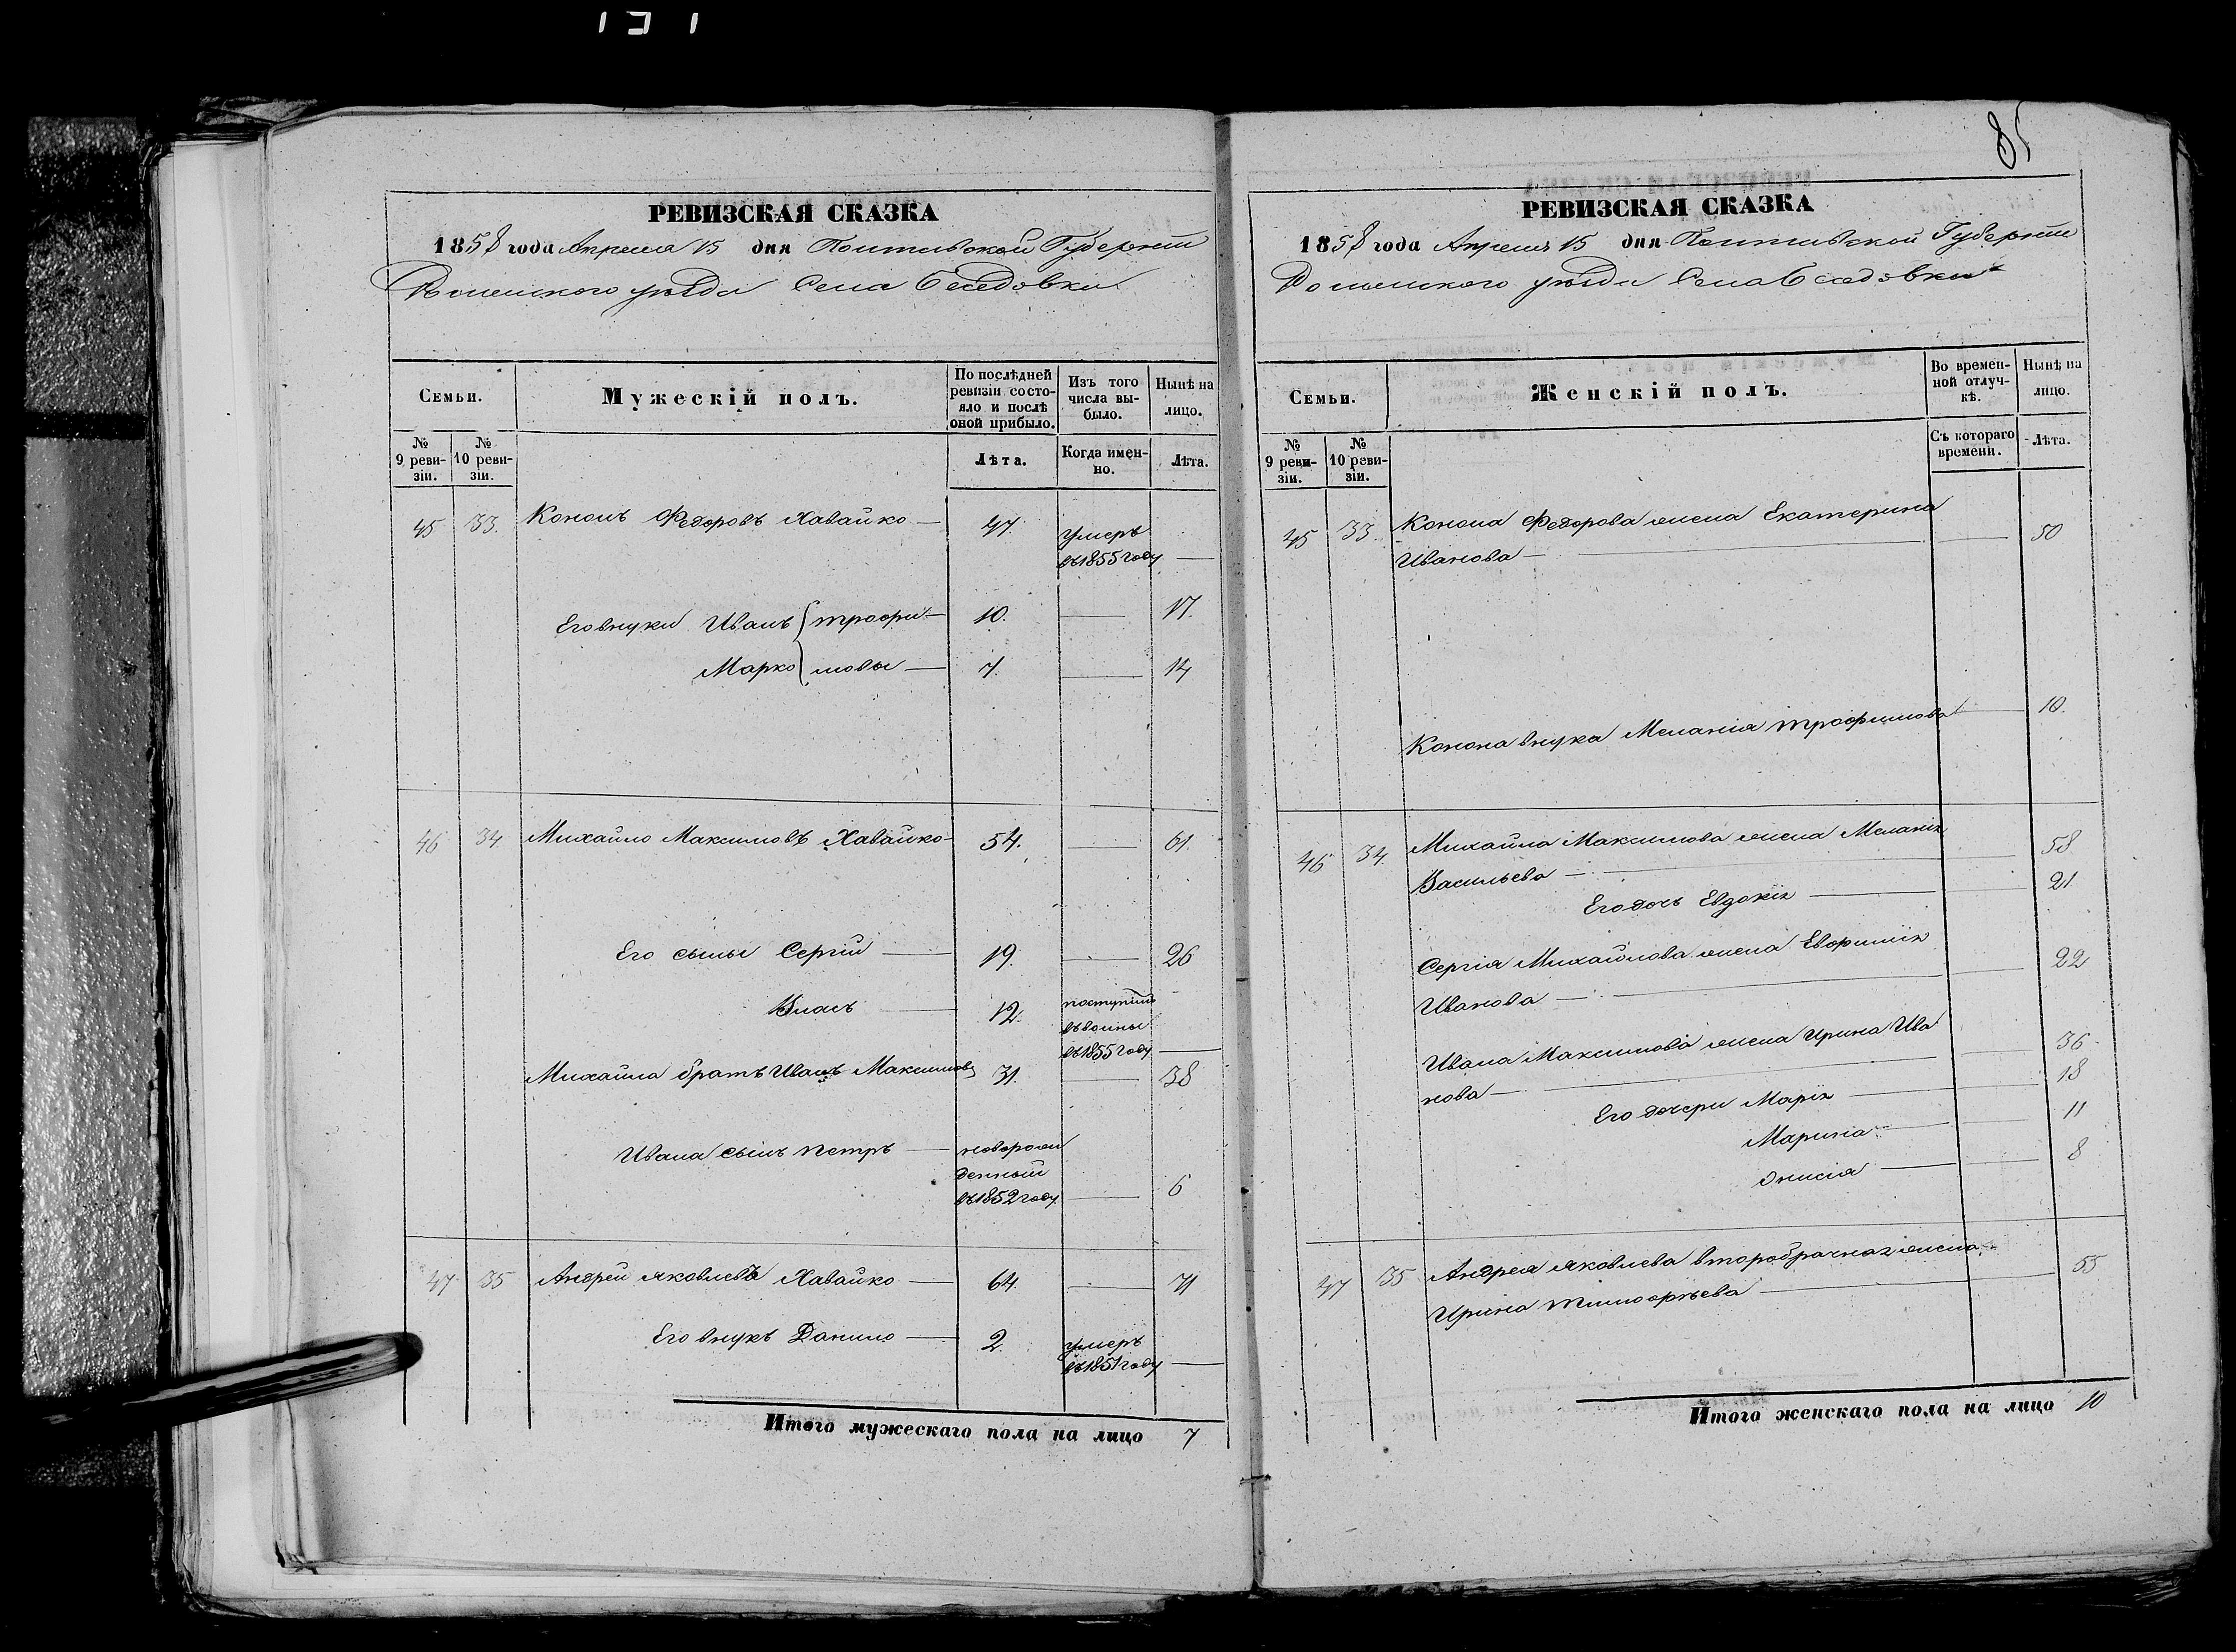 131
РЕВИЗСКАЯ СКАЗКА
1858 года Апреля 15 дня Полтавской Губерніи
Роменского уѣзда Села Беседовки
Семьи.
Мужескій полъ.
По послѣдней ревизіи состояло и послѣ оной прибыло.
Изъ того числа выбыло.
Нынѣ на лицо.
№ 9 ревизіи.
№ 10 ревизіи.
Лѣта.
Когда именно.
Лѣта.
45 33. Кононъ Федоровъ Хавайко — 47. умеръ
въ 1855 году —
Его внуки Иванъ трофи— 10. — 17.
Марко мовы — 7. — 14
46 34 Михайло Максимовъ Хавайко— 54. — 61.
Его сыны Сергій — 19. — 26
Власъ — 12. поступилъ
въ воины
въ 1855 году —
Михайла братъ Иванъ Максимовъ 31. — 38
Ивана сынъ Петръ — новорож
денный
въ 1852 году — 6
47 35 Андрей Яковлевъ Хавайко — 64. — 71
Его внукъ Данило — 2. умеръ
въ 1851 году —
Итого мужескаго пола на лицо 7
85
РЕВИЗСКАЯ СКАЗКА
1858 года Апреля 15 дня Полтавской Губерніи
Роменского уѣзда Села Беседовки
Семьи.
Женскій полъ.
Во временной отлучкѣ.
Нынѣ на лицо.
№ 9 ревизіи.
№ 10 ревизіи.
Съ котораго времени.
Лѣта.
45 33. Конона Федорова жена Екатерина
Иванова — — 50
Конона внука Меланія трофимова — 10.
46 34. Михайла Максимова жена Меланія
Васильева — 58
Его дочь Евдокія — 21
Сергія Михайлова жена Евфимія
Иванова — 22
Ивана Максимова жена Ирина Ива
нова — 36
Его дочери Марія — 18
Марина — 11
Онисія — 8
47 35 Андрея Яковлева второбрачная жена
Ирина тимофѣева — 55
Итого женскаго пола на лицо 10